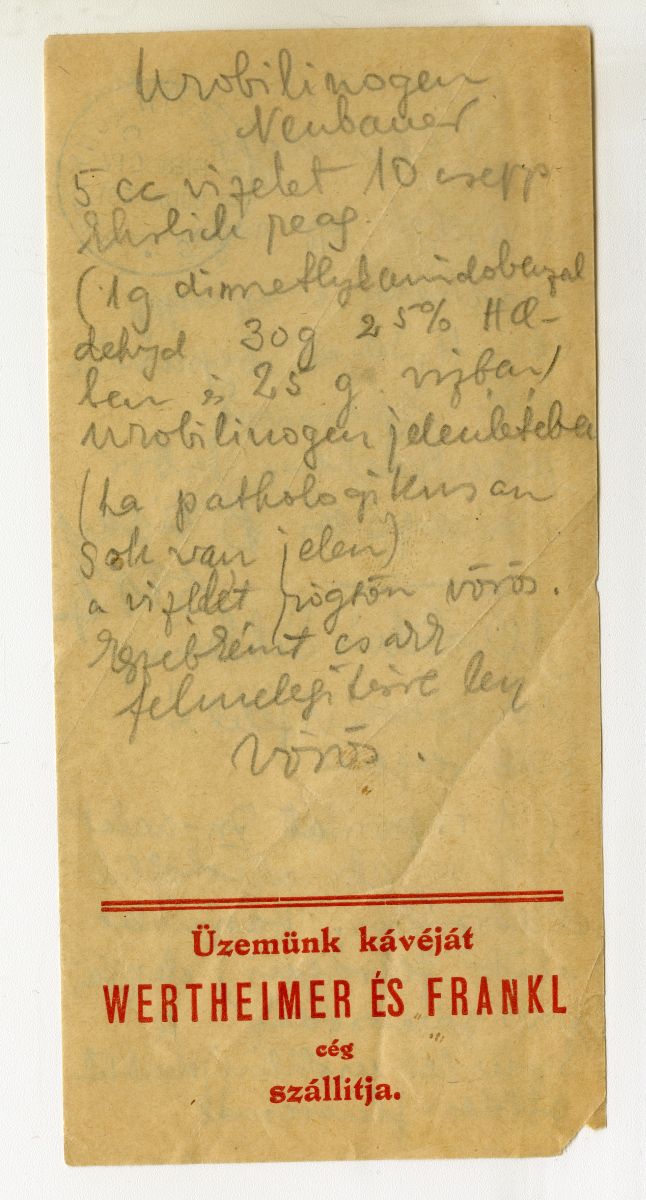 Urobilinogen
Neubauer
5 cc vizelet 10 csepp
Ehrlich reag.
(1g dimethylamidobenzal
dehyd 30g 25% HCl-
ben és 25 g. vizben)
Urobilinogen jelenlétében
(ha pathologikusan
sok van jelen)
a vizelet rögtön vörös.
Egyébként csak
felmelegitésre lesz
vörös.
Üzemünk kávéját
WERTHEIMER ÉS FRANKL
cég
szállitja.